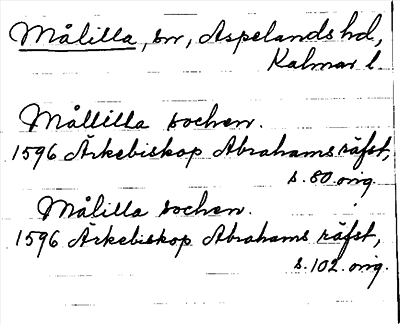 Målilla, sn, Aspelands hd,
Kalmar l.
Mållilla sochen.
1596 Ärkebiskop Abrahams räfst,
s. 80 orig.
Målilla sochen.
1596 Ärkebiskop Abrahams räfst,
s. 102 orig.